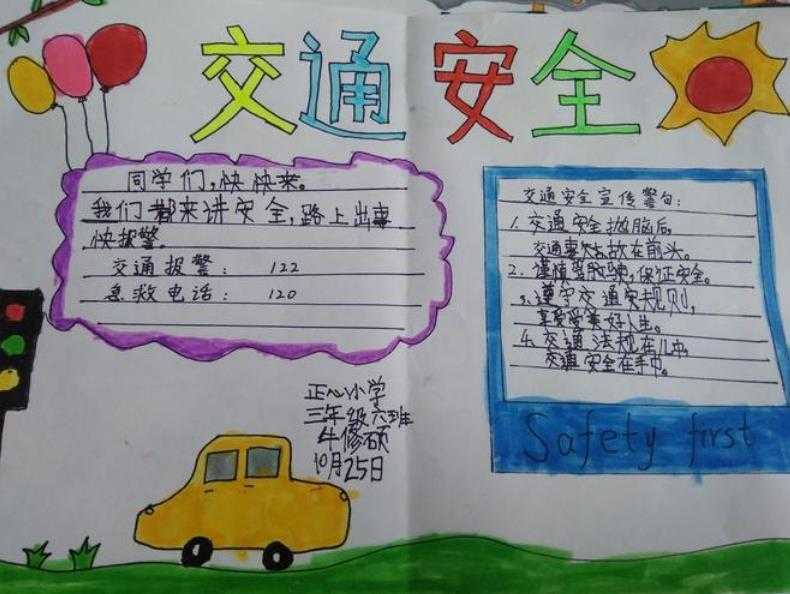 交通安全
同学们,快快来。
我们都来讲安全,路上出事
快报警。
交通报警: 122
急救电话: 120
正心小学
三年级六班
牛修硕
10月25日
交通安全宣传警句:
1. 交通安全抛脑后,
交通事故在前头。
2. 谨慎驾驶,保证安全。
3. 遵守交通规则,
享受美好人生。
4. 交通法规在心中,
交通安全在手中。
Safety first